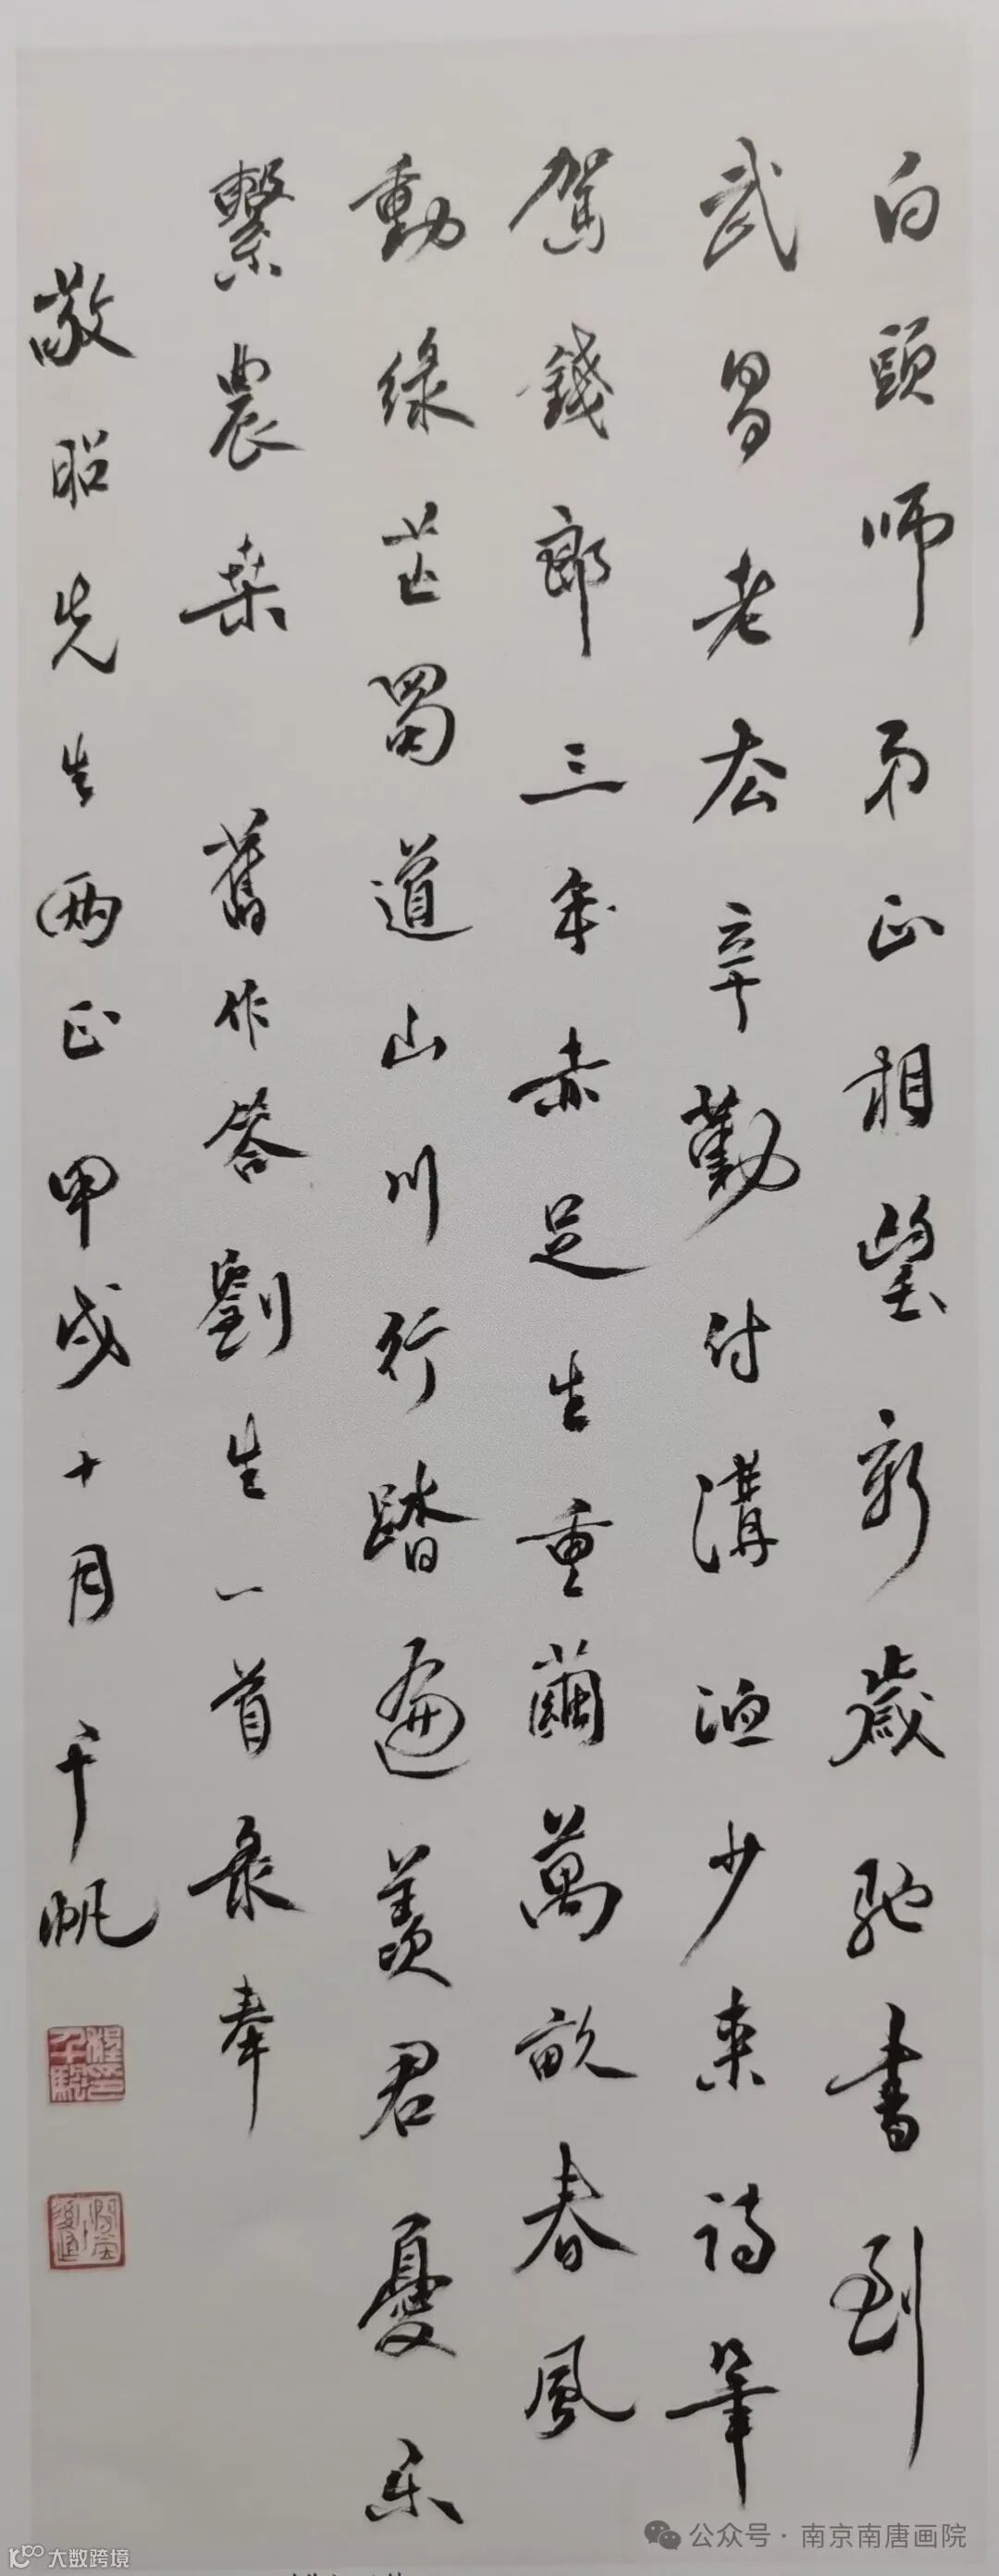 白頭師弟正相望新歲馳書到
武昌老去辛勤付溝洫少來詩筆
駕錢郎三年赤足生重繭萬畝春風
動綠芒蜀道山川行踏遍羨君憂樂
繫農桒 舊作答劉生一首录奉
敬昭先生兩正甲戌十月千帆
程千帆印
公众号 · 南京南唐画院
大数跨境